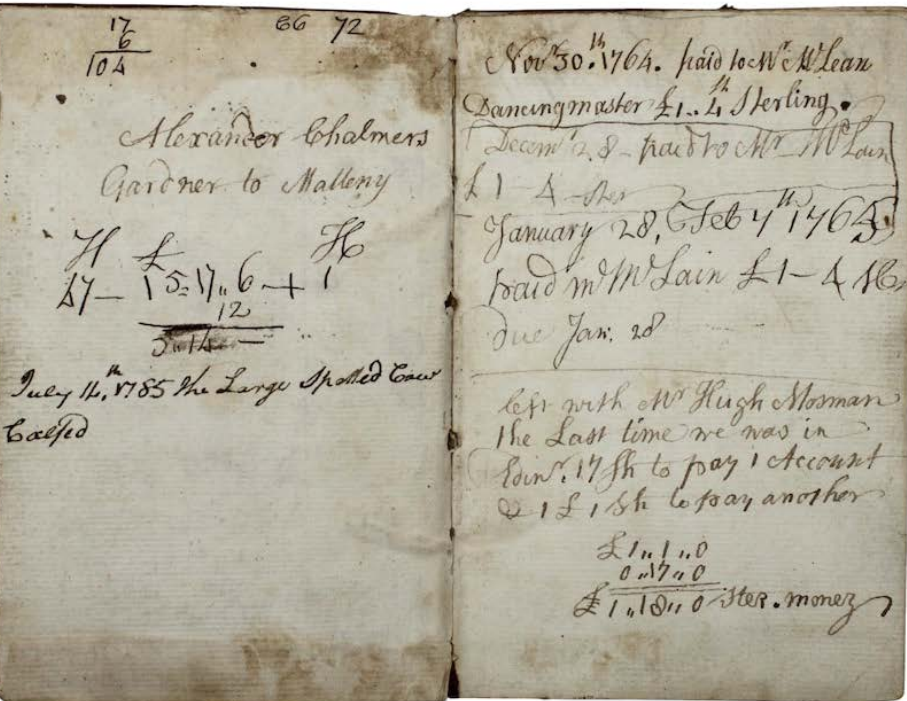 17 66 72
6
104
Alexander Chalmers
Gardner to Malleny
H £ H
47 — 15..17..6 — + 1
12
5..14 —
July 14,th 1785 the Large Spotted Cow
Calfed
Novr 30.th 1764. paid to Mr McLean
Dancingmaster £1..4 Sterling.
Decemr 28 – paid to Mr McLain
£ 1 – 4 – ster
January 28, Feb 7th 1765
paid Mr McLain £1 – 4
due Jan: 28
left with Mr Hugh Mosman
the Last time we was in
Edinr. 17 sh to pay 1 Account
& 1 £ 1 sh to pay another
£1,,1,,0
0,,17,,0
£ 1,,18,,0 ster. money